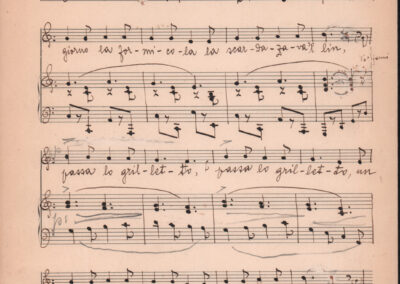 giorno la for-mi-co-la la scar-da-za-va'l lin,
passa lo gril-let-to, passa lo gril-let-to, un